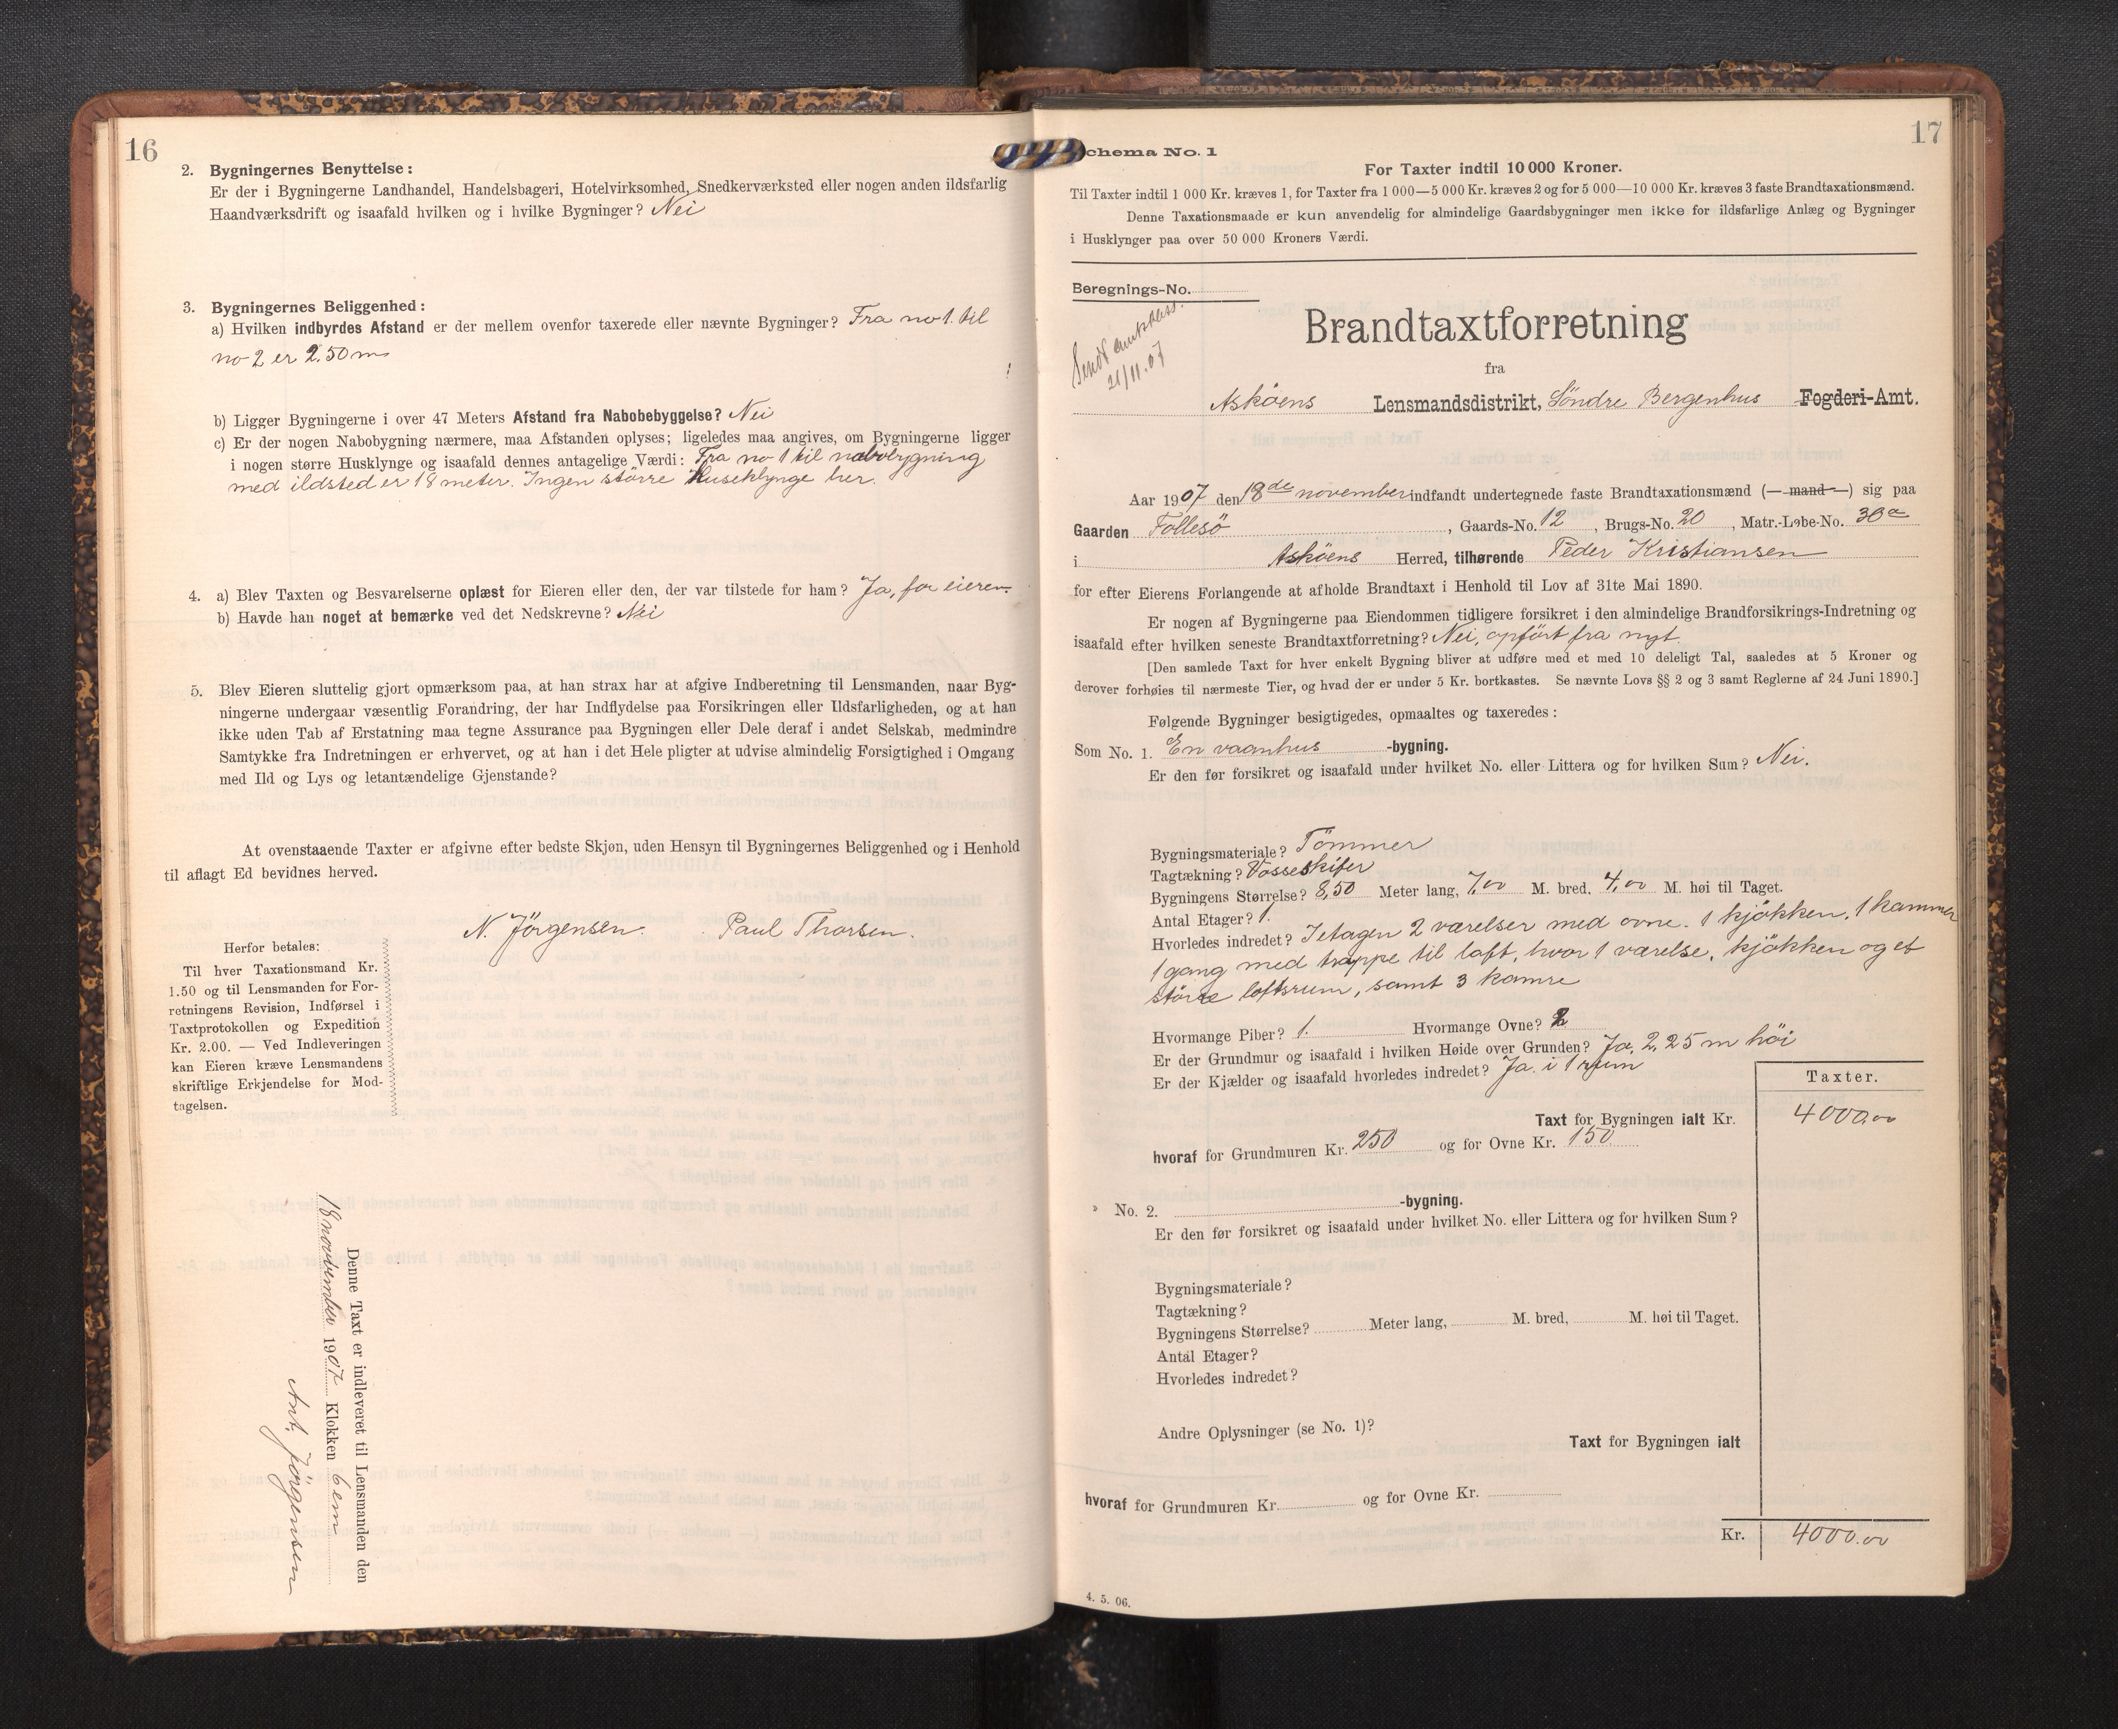 16
2. Bygningernes Benyttelse:
Er der i Bygningerne Landhandel, Handelsbageri, Hotelvirksomhed, Snedkerværksted eller nogen anden ildsfarlig
Haandværksdrift og isaafald hvilken og i hvilke Bygninger? Nei
3. Bygningernes Beliggenhed:
a) Hvilken indbyrdes Afstand er der mellem ovenfor taxerede eller nævnte Bygninger? Fra no 1. til
no 2 er 2.50 m
b) Ligger Bygningerne i over 47 Meters Afstand fra Nabobebyggelse? Nei
c) Er der nogen Nabobygning nærmere, maa Afstanden oplyses; ligeledes maa angives, om Bygningerne ligger
i nogen større Husklynge og isaafald dennes antagelige Værdi: Fra no 1 til nabobygning
med ildsted er 18 meter. Ingen større Huseklynge her.
4. a) Blev Taxten og Besvarelserne oplæst for Eieren eller den, der var tilstede for ham? Ja, for eieren
b) Havde han noget at bemærke ved det Nedskrevne? Nei
5. Blev Eieren sluttelig gjort opmærksom paa, at han strax har at afgive Indberetning til Lensmanden, naar Byg-
ningerne undergaar væsentlig Forandring, der har Indflydelse paa Forsikringen eller Ildsfarligheden, og at han
ikke uden Tab af Erstatning maa tegne Assurance paa Bygningen eller Dele deraf i andet Selskab, medmindre
Samtykke fra Indretningen er erhvervet, og at han i det Hele pligter at udvise almindelig Forsigtighed i Omgang
med Ild og Lys og letantændelige Gjenstande?
At ovenstaaende Taxter er afgivne efter bedste Skjøn, uden Hensyn til Bygningernes Beliggenhed og i Henhold
til aflagt Ed bevidnes herved.
N. Jörgensen. Paul Thorsen.
Herfor betales:
Til hver Taxationsmand Kr.
1.50 og til Lensmanden for For-
retningens Revision, Indførsel i
Taxtprotokollen og Expedition
Kr. 2.00. — Ved Indleveringen
kan Eieren kræve Lensmandens
skriftlige Erkjendelse for Mod-
tagelsen.
Denne Taxt er indleveret til Lensmanden den
18 november 1907 Klokken 6 em
Ant. Jörgensen
17
Schema No. 1
For Taxter indtil 10 000 Kroner.
Til Taxter indtil 1 000 Kr. kræves 1, for Taxter fra 1 000—5 000 Kr. kræves 2 og for 5 000—10 000 Kr. kræves 3 faste Brandtaxationsmænd.
Denne Taxationsmaade er kun anvendelig for almindelige Gaardsbygninger men ikke for ildsfarlige Anlæg og Bygninger
i Husklynger paa over 50 000 Kroners Værdi.
Beregnings-No.
21/11.07
Brandtaxtforretning
fra
Asköens Lensmandsdistrikt, Söndre Bergenhus Fogderi-Amt.
Aar 1907 den 18de november indfandt undertegnede faste Brandtaxationsmænd (— mand —) sig paa
Gaarden Follesö, Gaards-No. 12, Brugs-No. 20, Matr.-Løbe-No. 30a
i Asköens Herred, tilhørende Peder Kristiansen
for efter Eierens Forlangende at afholde Brandtaxt i Henhold til Lov af 31te Mai 1890.
Er nogen af Bygningerne paa Eiendommen tidligere forsikret i den almindelige Brandforsikrings-Indretning og
isaafald efter hvilken seneste Brandtaxtforretning? Nei, opfört fra nyt.
[Den samlede Taxt for hver enkelt Bygning bliver at udføre med et med 10 deleligt Tal, saaledes at 5 Kroner og
derover forhøies til nærmeste Tier, og hvad der er under 5 Kr. bortkastes. Se nævnte Lovs §§ 2 og 3 samt Reglerne af 24 Juni 1890.]
Følgende Bygninger besigtigedes, opmaaltes og taxeredes:
Som No. 1. En vaanhus -bygning.
Er den før forsikret og isaafald under hvilket No. eller Littera og for hvilken Sum? Nei.
Bygningsmateriale? Tömmer
Tagtækning? Vosseskifer
Bygningens Størrelse? 8,50 Meter lang, 7,00 M. bred, 4,00 M. høi til Taget.
Antal Etager? 1.
Hvorledes indredet? I etagen 2 værelser med ovne. 1 kjökken, 1 kammer
1 gang med trappe til loft, hvor 1 værelse, kjökken og et
större loftsrum, samt 3 kamre
Hvormange Piber? 1. Hvormange Ovne? 2
Er der Grundmur og isaafald i hvilken Høide over Grunden? Ja, 2,25 m höi
Er der Kjælder og isaafald hvorledes indredet? Ja. i 1 rum
Taxter.
Taxt for Bygningen ialt Kr. 4000,00
hvoraf for Grundmuren Kr. 250 og for Ovne Kr. 150
» No. 2. -bygning.
Er den før forsikret og isaafald under hvilket No. eller Littera og for hvilken Sum?
Bygningsmateriale?
Tagtækning?
Bygningens Størrelse? Meter lang, M. bred, M. høi til Taget.
Antal Etager?
Hvorledes indredet?
Andre Oplysninger (se No. 1)?
Taxt for Bygningen ialt
hvoraf for Grundmuren Kr. og for Ovne Kr.
Kr. 4000.00
4. 5. 06.